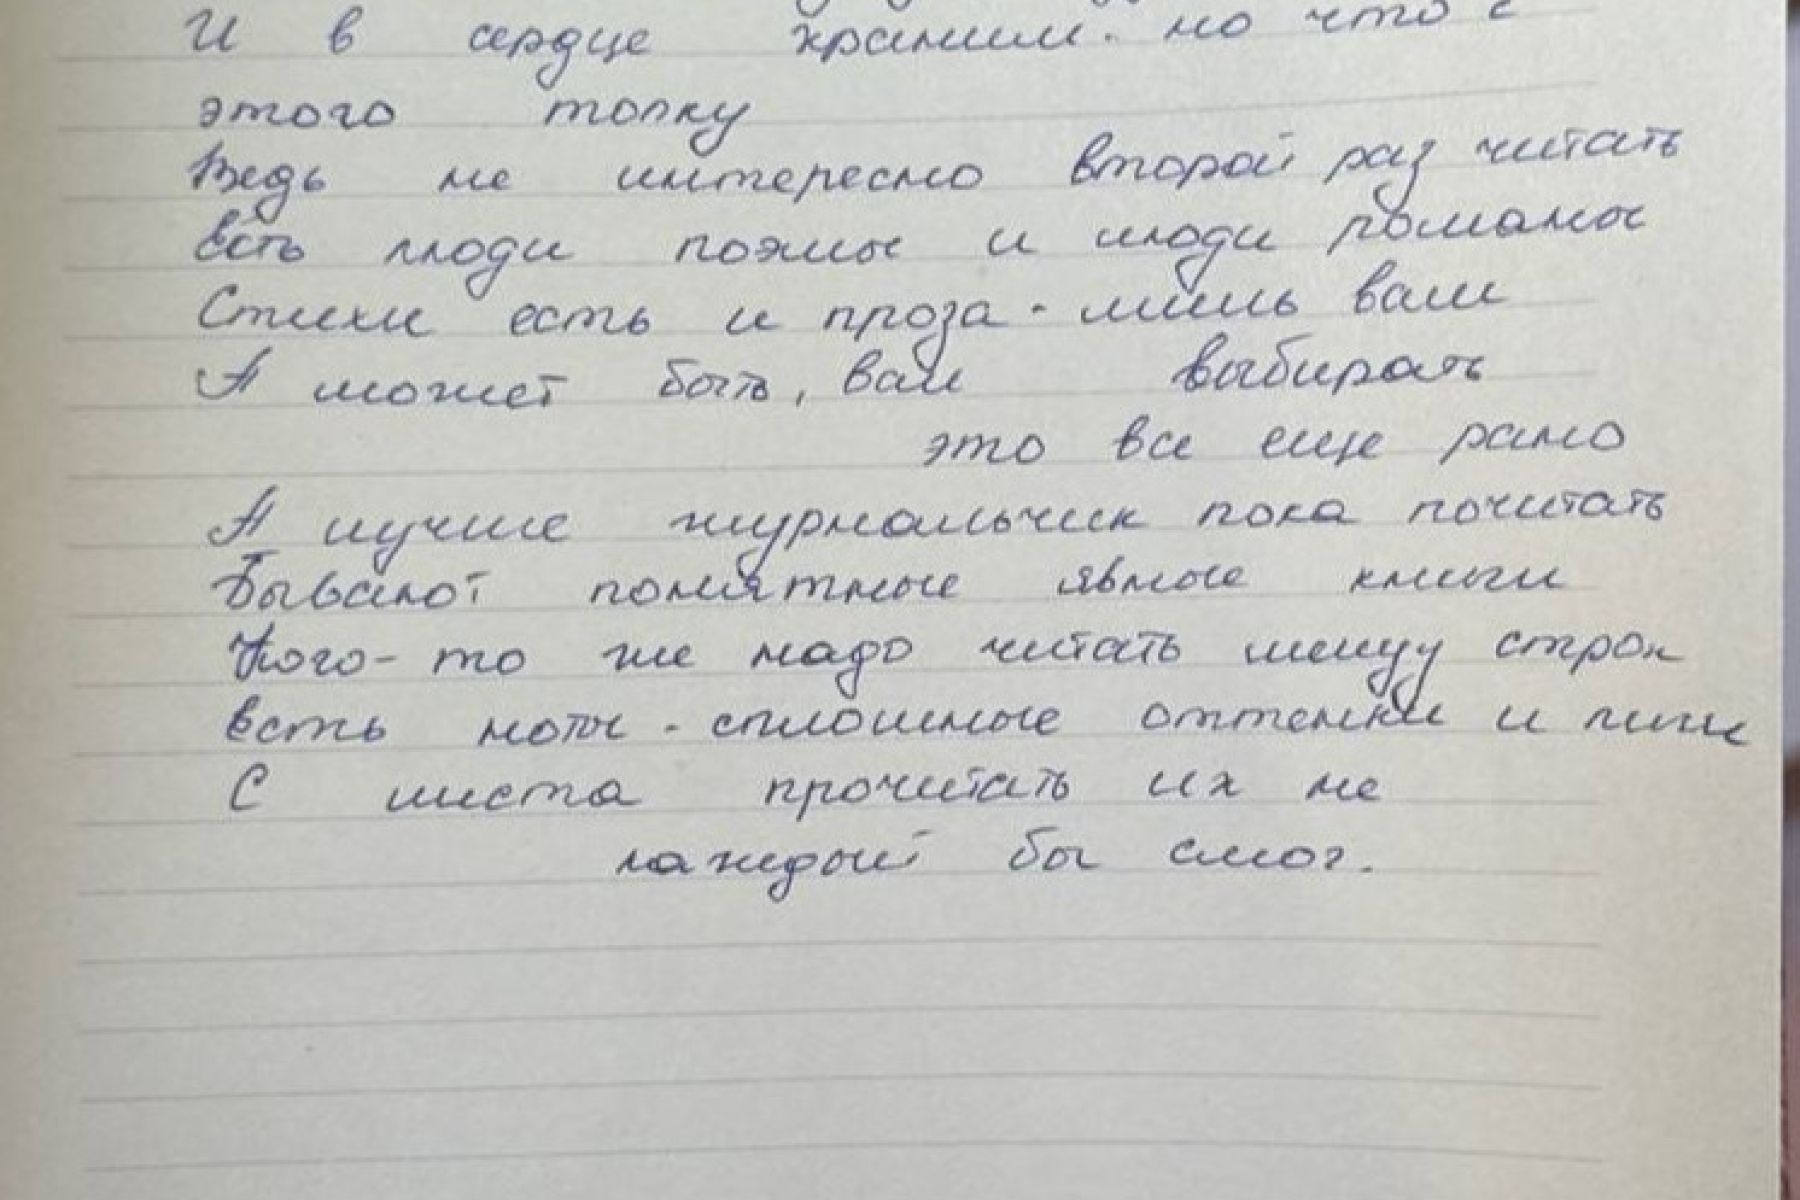 И в сердце храним. но что с
этого толку
Ведь не интересно второй раз читать
Есть люди поэмы и люди романы
Стихи есть и проза - лишь вам
выбирать
А может быть, вам
это все еще рано
А лучше журнальчик пока почитать
Бывают понятные явные книги
Кого-то же надо читать между строк
Есть ноты - сплошные оттенки и лиги
С листа прочитать их не
каждый бы смог.